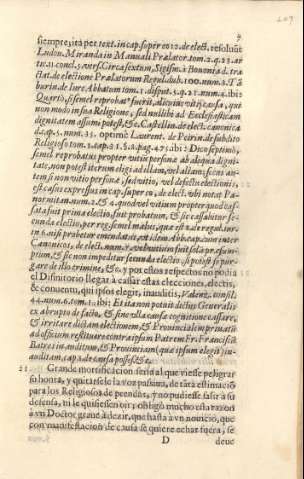 9
siempre, ita per text. in cap. super eo 12. de elect. resoluit
Ludou. Miranda in Manuali Prælator. tom. 2. q. 23. ar
tic. 11. concl. 5. vers. Circa sextum, Sigism. à Bononia d. tra
ctat. de electione Prælatorum Regul. dub. 100. num. 2. Tã
burin. de Iure Abbatum tom. 1. disput. 5. q. 21. num. 4. ibi:
Quarto, si semel reprobat° fuerit, alicuius vitij causa, qui
non modo in sua Religione, sed nullibi ad Ecclesiasticam
dignitatem assumi potest, & D. Castellin. de elect. canonica
d. cap. 5. num. 35. optimè Laurent. de Peirin. de subdito
Religioso tom. 2. cap. 21. §. 2. pag. 475. ibi: Dico septimò,
semel reprobatus propter vitij personæ ab aliqua digni-
tate, non potest iterum eligi ad illam, vel aliam; secus au-
tem si non vitio personæ, sed vitio, vel defectu electionis,
est casus expressus in cap. super eo, de elect. vbi notat Pa-
normitan. num. 2. & 4. quod vel vitium propter quod cas-
sata fuit prima electio, fuit probatum, & sic cassabitur se-
cunda electio, per reg. semel malus, quæ est 8. de regul. iur.
in 6. nisi probetur emendatus, est idem Abb. cap. cum inter
Canonicos, de elect. num. 7. vel vitium fuit solùm præsum-
ptum, & sic non impeditur secunda electio, si potest se pur-
gare de illo crimine, &c. y por estos respectos no podia
el Difinitorio llegar à cassar estas elecciones, electis,
& conuentu, qui ipsos elegit, inauditis, Valenz. consil.
44. num. 6. tom. 1. ibi: Et ita non potuit dictus Generalis
ex abrupto de facto, & sine vlla causa cognitione cassare,
& irritare dictam electionem, & Prouincialem priuatum
ad officium restituere contra ipsum Patrem Fr. Francisco
Batres inauditum, & Prouinciam, quæ ipsum elegit, in-
auditam, cap. 1. de causa poses. & c.
21 Grande mortificacion seria al que viesse peligrar
su honra, y quitarsele la voz passiua, de tãta estimaciõ
para los Religiosos de prendas, y no pudiesse salir à su
defensa, ni le quisiessen oir; obligò mucho esta razon
à vn Doctor graue à dezir, que hasta à vn nouicio, que
con manifestacion de causa se quiere echar fuera, se
D deue